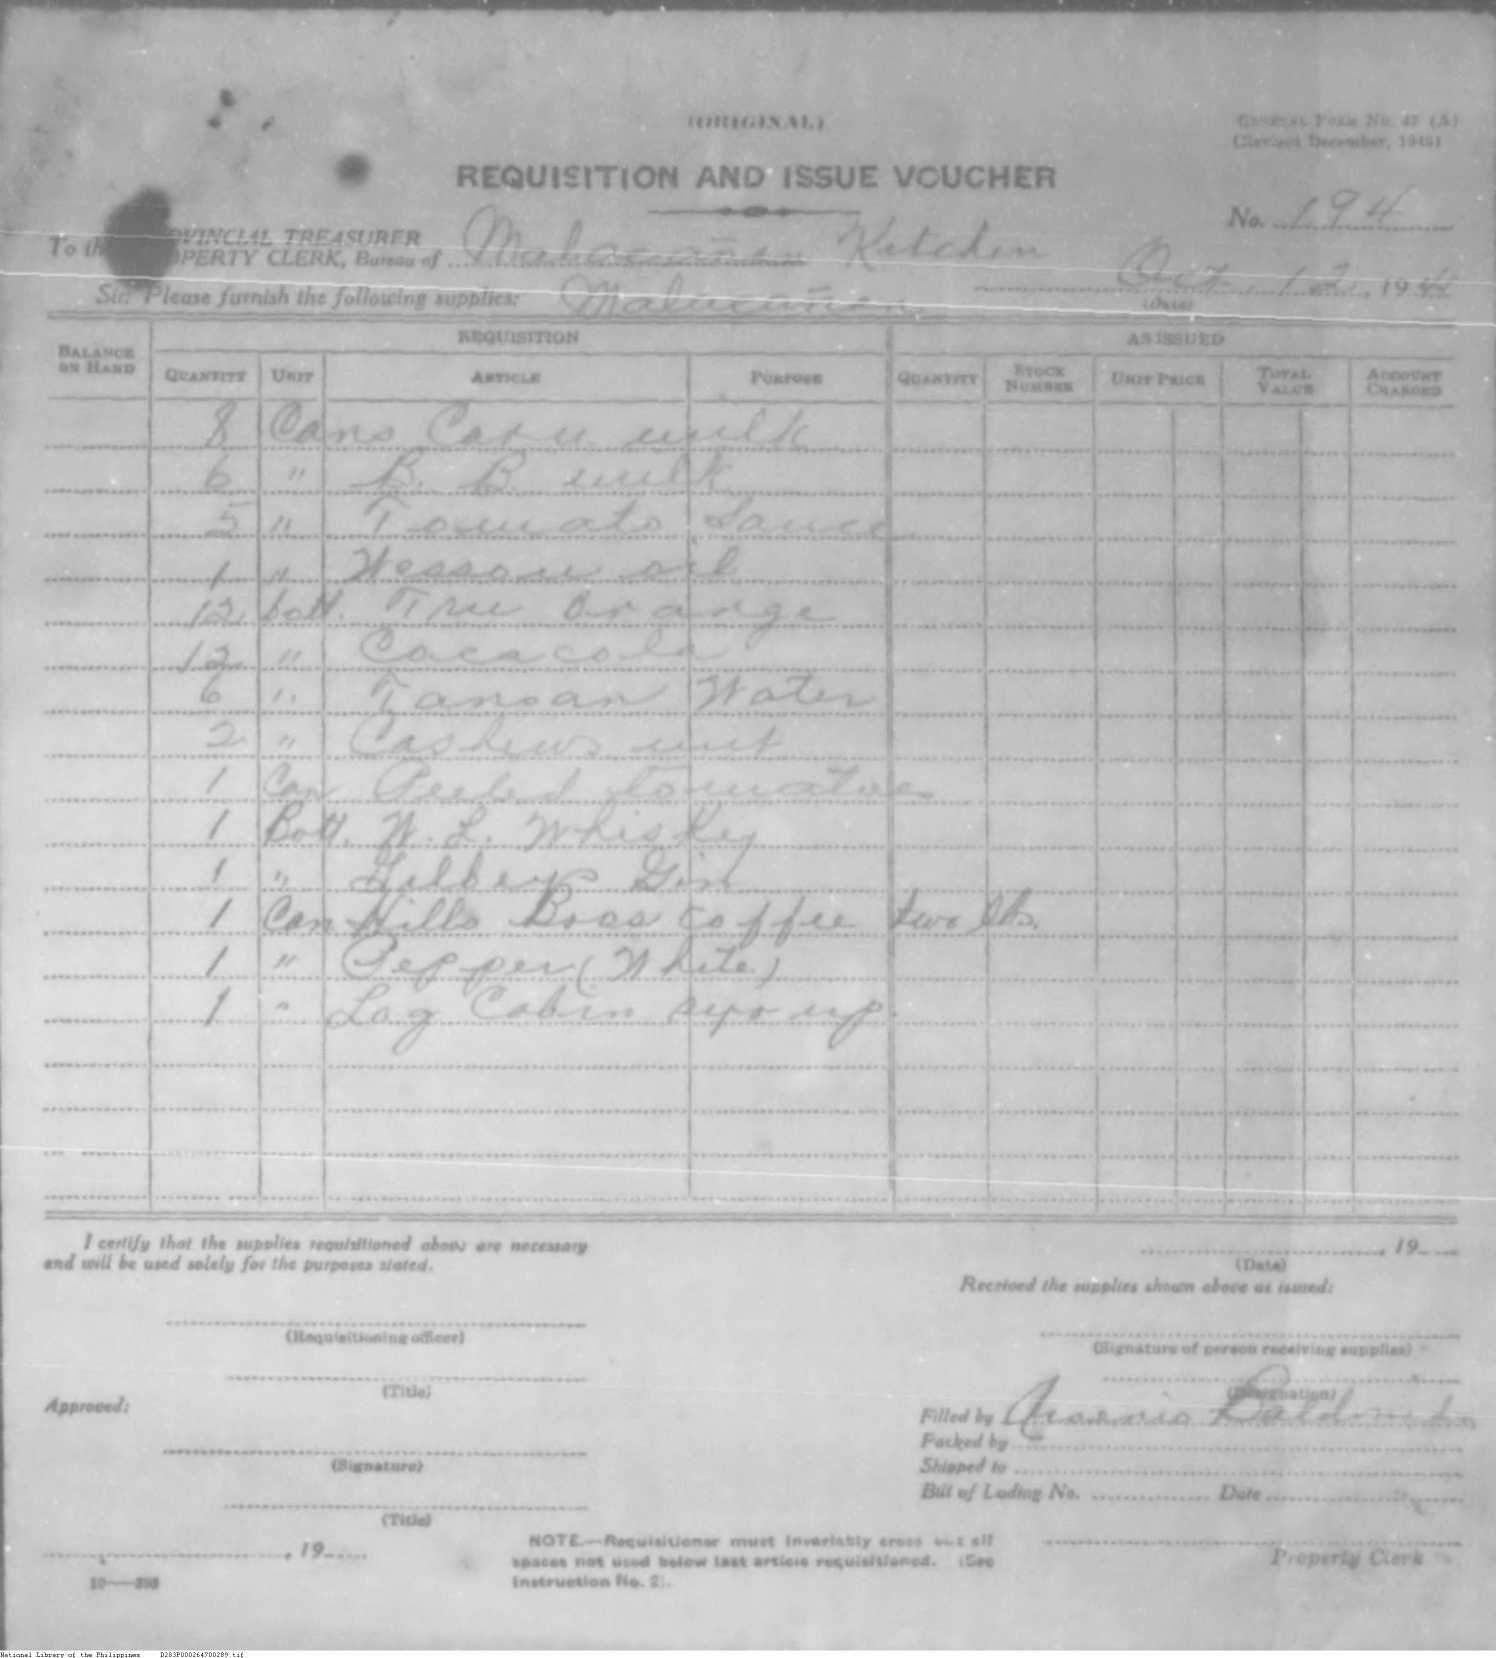 (ORIGINAL)
GENERAL FORM NO. 45 (A)
(Revised December, 1945)
REQUISITION AND ISSUE VOUCHER
No. 194
PROVINCIAL TREASURER
To the PROPERTY CLERK, Bureau of Malacañan Kitchen
Oct. 12, 19
(Date)
Sir: Please furnish the following supplies: Malacañan
REQUISITION AS ISSUED
BALANCE ON HAND QUANTITY UNIT ARTICLE PURPOSE QUANTITY STOCK NUMBER UNIT PRICE TOTAL VALUE ACCOUNT CHARGED
8 Cans Caru milk
6 " B. B. milk
5 " Tomato Sauce
1 " Wesson oil
12 bott. Tru Orange
12 " Cocacola
6 " Tansan Water
2 " Cashews nut
1 Can Peeled tomatoe
1 Bott. W. L. Whiskey
1 " Gilbeys Gin
1 Can Hills Bros coffee two lbs.
1 " Pepper (White)
1 " Log Cabin syroup.
I certify that the supplies requisitioned above are necessary
and will be used solely for the purposes stated.
, 19
(Date)
Received the supplies shown above as issued:
(Requisitioning officer)
(Signature of person receiving supplies)
(Title)
(Designation)
Approved:
Filled by Arsenio Baldomido
Packed by
(Signature)
Shipped to
Bill of Lading No. Date
(Title)
NOTE.—Requisitioner must invariably cross out all
spaces not used below last article requisitioned. (See
Instruction No. 2).
, 19
Property Clerk
National Library of the Philippines D283P000264700289.tif